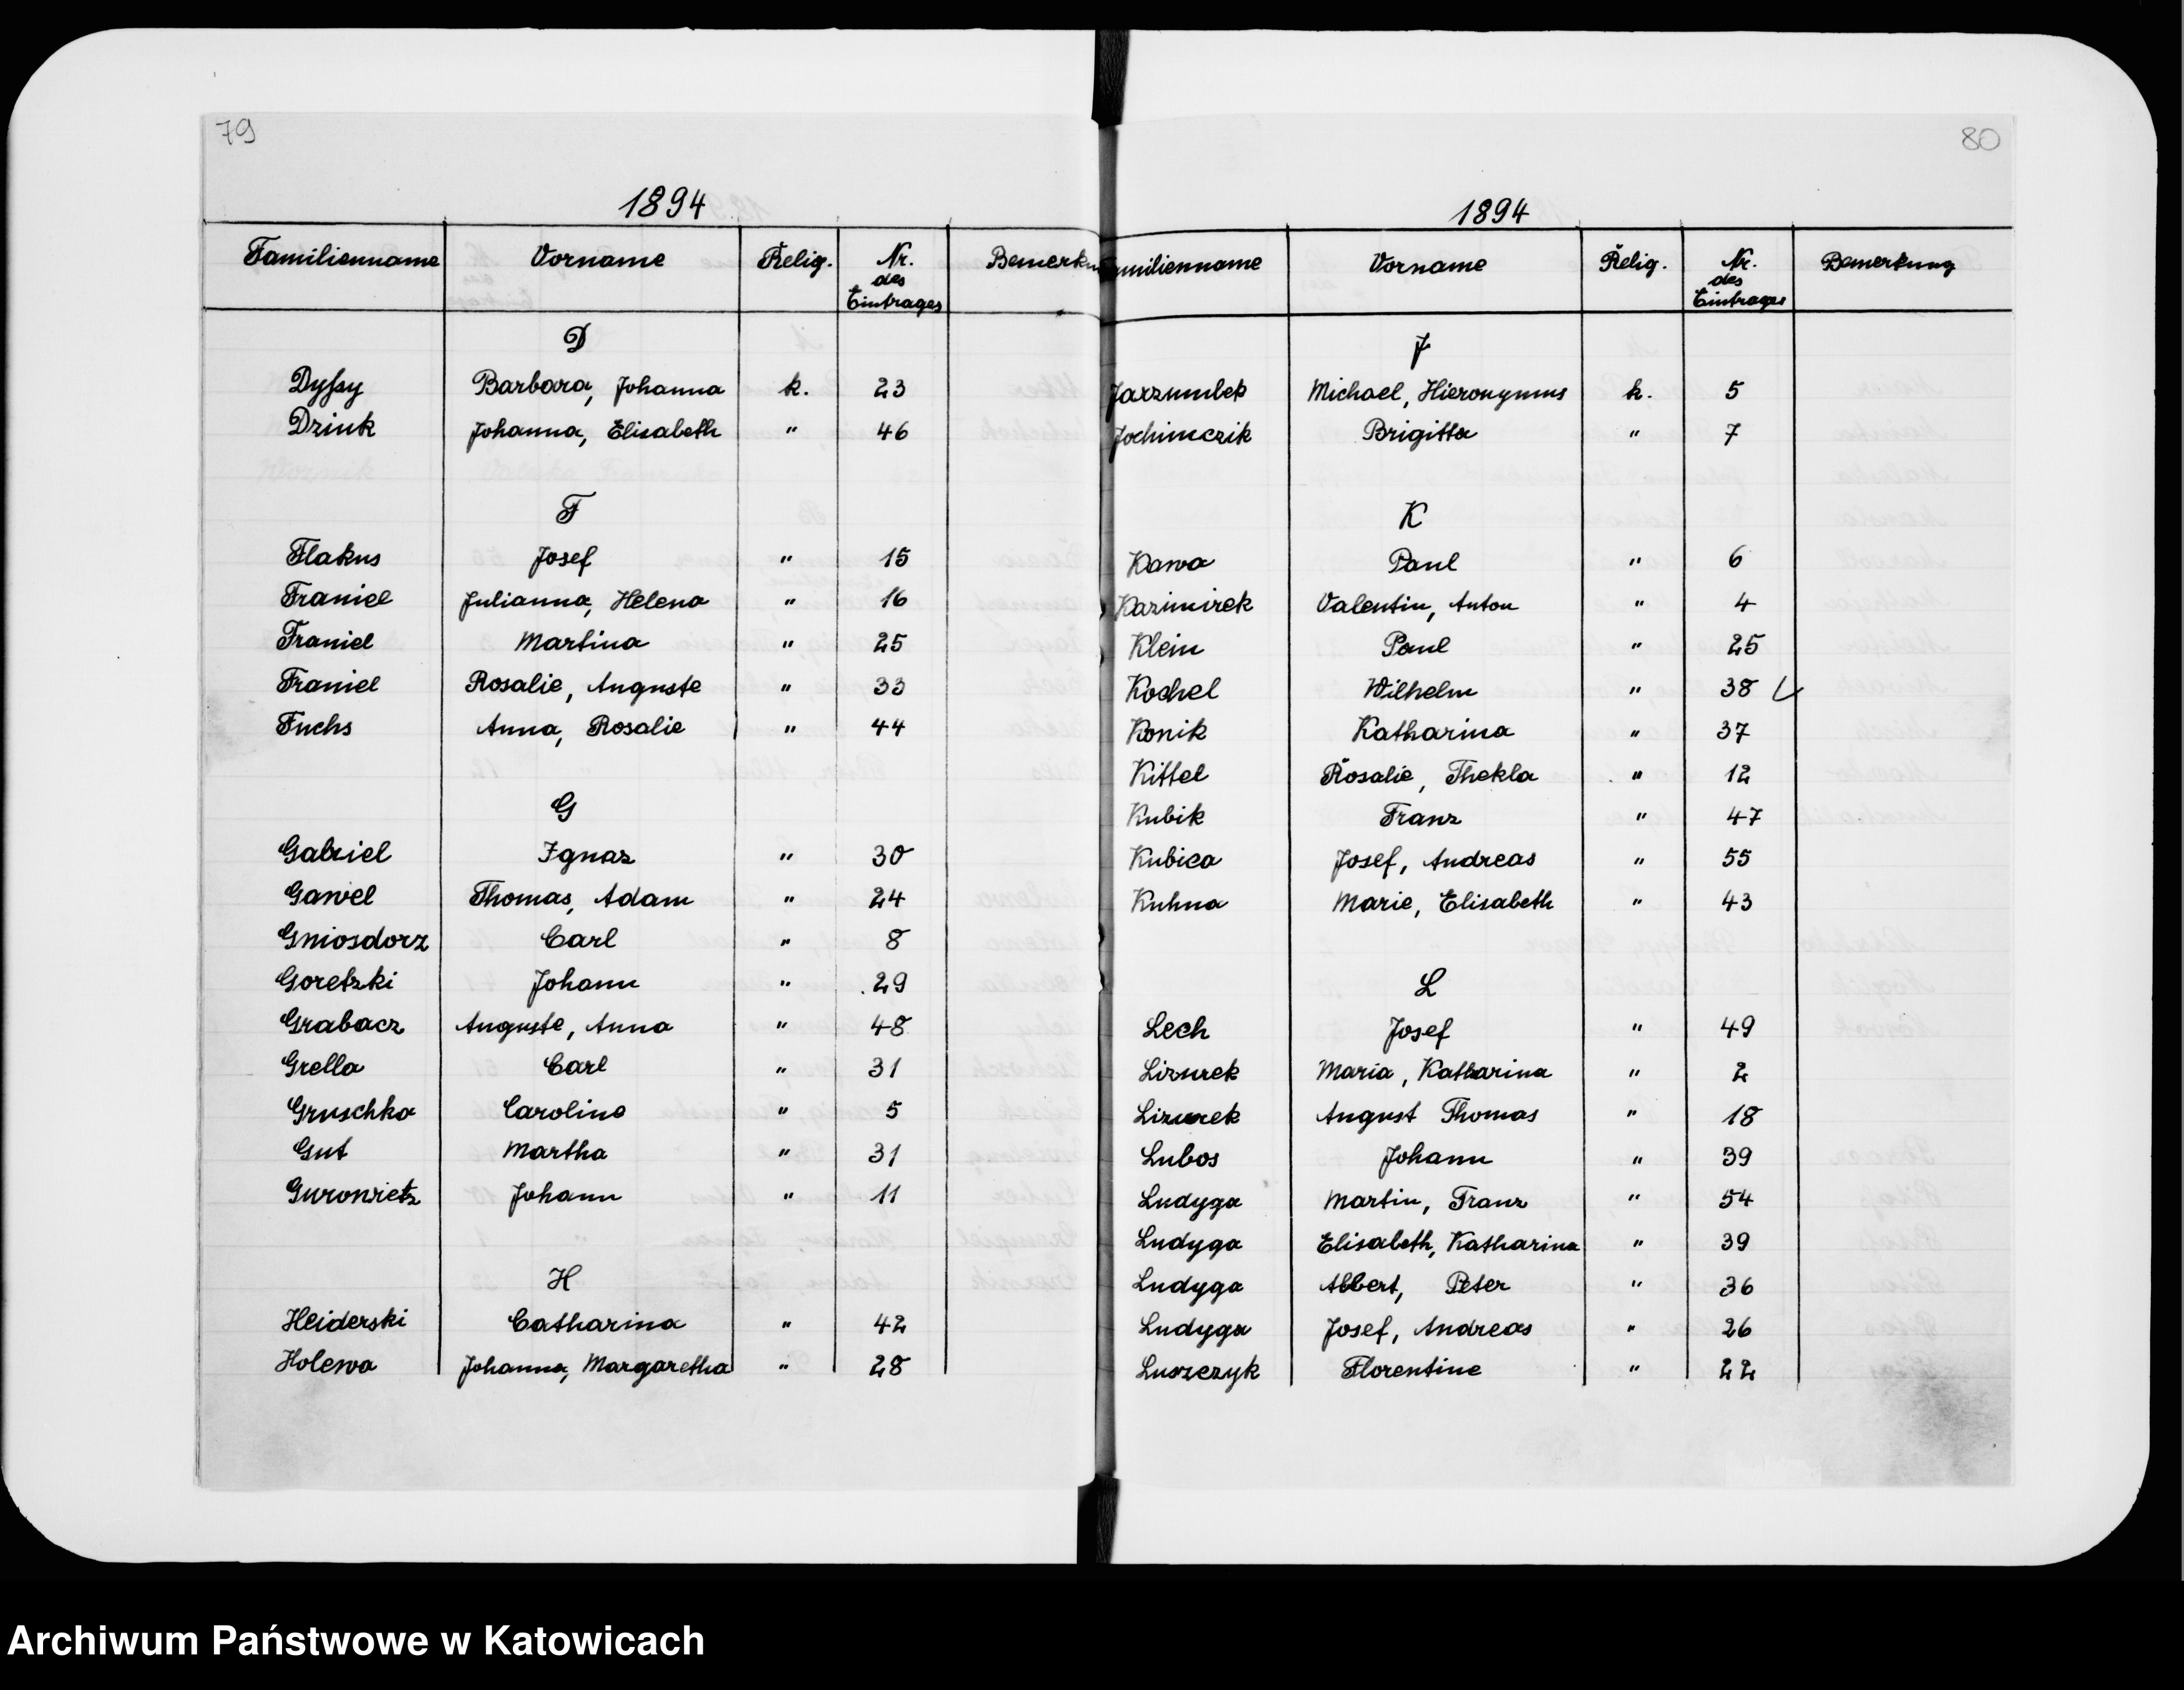 79
1894
Familienname Vorname Relig. Nr. des Eintrages Bemerku
D
Dyssy Barbara, Johanna k. 23
Dzink Johanna, Elisabeth " 46
F
Flakus Josef " 15
Franiel Julianna, Helena " 16
Franiel Martina " 25
Franiel Rosalie, Auguste " 33
Fuchs Anna, Rosalie " 44
G
Gabriel Ignaz " 30
Gawel Thomas, Adam " 24
Gniosdorz Carl " 8
Goretzki Johann " 29
Grabacz Auguste, Anna " 48
Grella Carl " 31
Gruschka Carolina " 5
Gut Martha " 31
Gurowietz Johann " 11
H
Heiderski Catharina " 42
Holewa Johanna, Margaretha " 28
80
1894
amilienname Vorname Relig. Nr. des Eintrages Bemerkung
J
Jarzumbek Michael, Hieronymus k. 5
Jochimczik Brigitta " 7
K
Kawa Paul " 6
Kazimirek Valentin, Anton " 4
Klein Paul " 25
Kochel Wilhelm " 38
Konik Katharina " 37
Kittel Rosalie, Thekla " 12
Kubik Franz " 47
Kubica Josef, Andreas " 55
Kuhna Marie, Elisabeth " 43
L
Lech Josef " 49
Lizurek Maria, Katharina " 2
Lizurek August Thomas " 18
Lubos Johann " 39
Ludyga Martin, Franz " 54
Ludyga Elisabeth, Katharina " 39
Ludyga Albert, Peter " 36
Ludyga Josef, Andreas " 26
Luszczyk Florentine " 22
Archiwum Państwowe w Katowicach